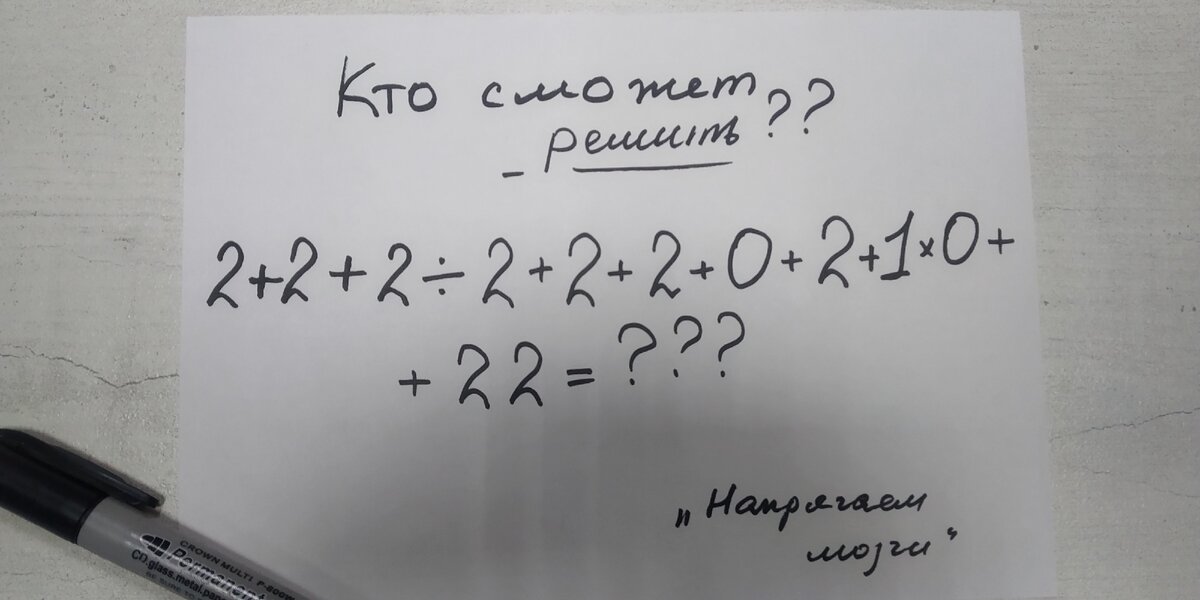 Кто сможет
- решить ??
2+2+2÷2+2+2+0+2+1×0+
+22=???
„Напрягаем
мозги“
CROWN MULTI P-800W
Permanent
CD.glass.metal.